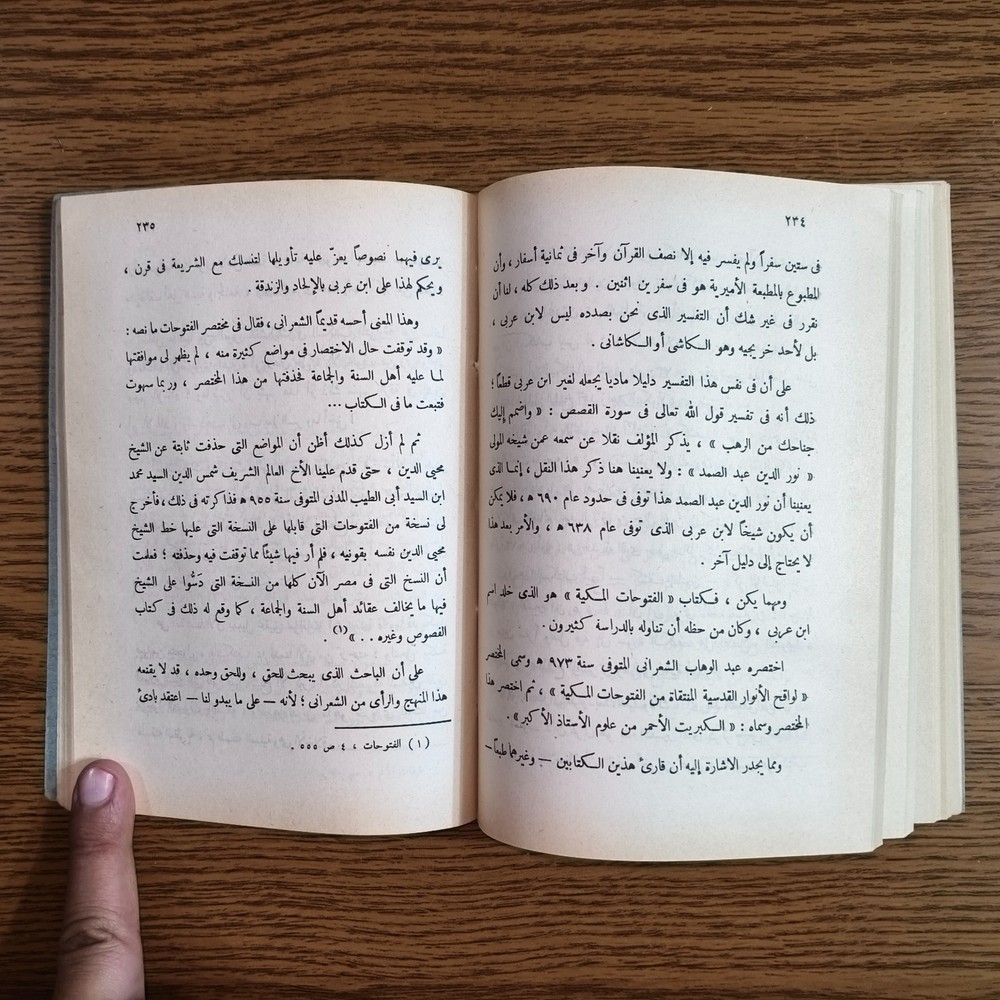 ٢٣٤
فى ستين سفراً ولم يفسر فيه إلا نصف القرآن وآخر فى ثمانية أسفار ، وأن
المطبوع بالمطبعة الأميرية هو فى سفرين اثنين . وبعد ذلك كله ، لنا أن
نقرر فى غير شك أن التفسير الذى نحن بصدده ليس لابن عربى ،
بل لأحد خريجيه وهو الكاشى أو الكاشانى .
على أن فى نفس هذا التفسير دليلا ماديا يجعله لغير ابن عربى قطعاً ؛
ذلك أنه فى تفسير قول الله تعالى فى سورة القصص : « واضمم إليك
جناحك من الرهب » ، يذكر المؤلف نقلا عن سمعه عمن شيخه المولى
« نور الدين عبد الصمد » : ولا يعنينا هنا ذكر هذا النقل ، إنما الذى
يعنينا أن نور الدين عبد الصمد هذا توفى فى حدود عام ٦٩٠ ه ، فلا يمكن
أن يكون شيخاً لابن عربى الذى توفى عام ٦٣٨ ه ، والأمر بعد هذا
لا يحتاج إلى دليل آخر .
ومهما يكن ، فكتاب « الفتوحات المكية » هو الذى خلد اسم
ابن عربى ، وكان من حظه أن تناوله بالدراسة كثيرون .
اختصره عبد الوهاب الشعرانى المتوفى سنة ٩٧٣ ه وسمى المختصر
« لواقح الأنوار القدسية المنتقاة من الفتوحات المكية » ، ثم اختصر هذا
المختصر وسماه : « الكبريت الأحمر من علوم الأستاذ الأكبر » .
ومما يجدر الاشارة إليه أن قارئ هذين الكتابين — وغيرهما طبعاً —
٢٣٥
يرى فيهما نصوصاً يعزّ عليه تأويلها لتنسلك مع الشريعة فى قرن ،
ويحكم لهذا على ابن عربى بالإلحاد والزندقة .
وهذا المعنى أحسه قديماً الشعرانى ، فقال فى مختصر الفتوحات ما نصه :
« وقد توقفت حال الاختصار فى مواضع كثيرة منه ، لم يظهر لى موافقتها
لما عليه أهل السنة والجماعة فحذفتها من هذا المختصر ، وربما سهوت
فتبعت ما فى الكتاب ...
ثم لم أزل كذلك أظن أن المواضع التى حذفت ثابتة عن الشيخ
محيى الدين ، حتى قدم علينا الأخ العالم الشريف شمس الدين السيد محمد
ابن السيد أبى الطيب المدنى المتوفى سنة ٩٥٥ ه فذاكرته فى ذلك ، فأخرج
لى نسخة من الفتوحات التى قابلها على النسخة التى عليها خط الشيخ
محيى الدين نفسه بقونيه ، فلم أر فيها شيئاً مما توقفت فيه وحذفته ؛ فعلمت
أن النسخ التى فى مصر الآن كلها من النسخة التى دَسُّوا على الشيخ
فيها ما يخالف عقائد أهل السنة والجماعة ، كما وقع له ذلك فى كتاب
الفصوص وغيره . . » (١)
على أن الباحث الذى يبحث للحق ، وللحق وحده ، قد لا يقنعه
هذا المنهج والرأى من الشعرانى ؛ لأنه — على ما يبدو لنا — اعتقد بادئ
(١) الفتوحات ، ٤ ص ٥٥٥ .